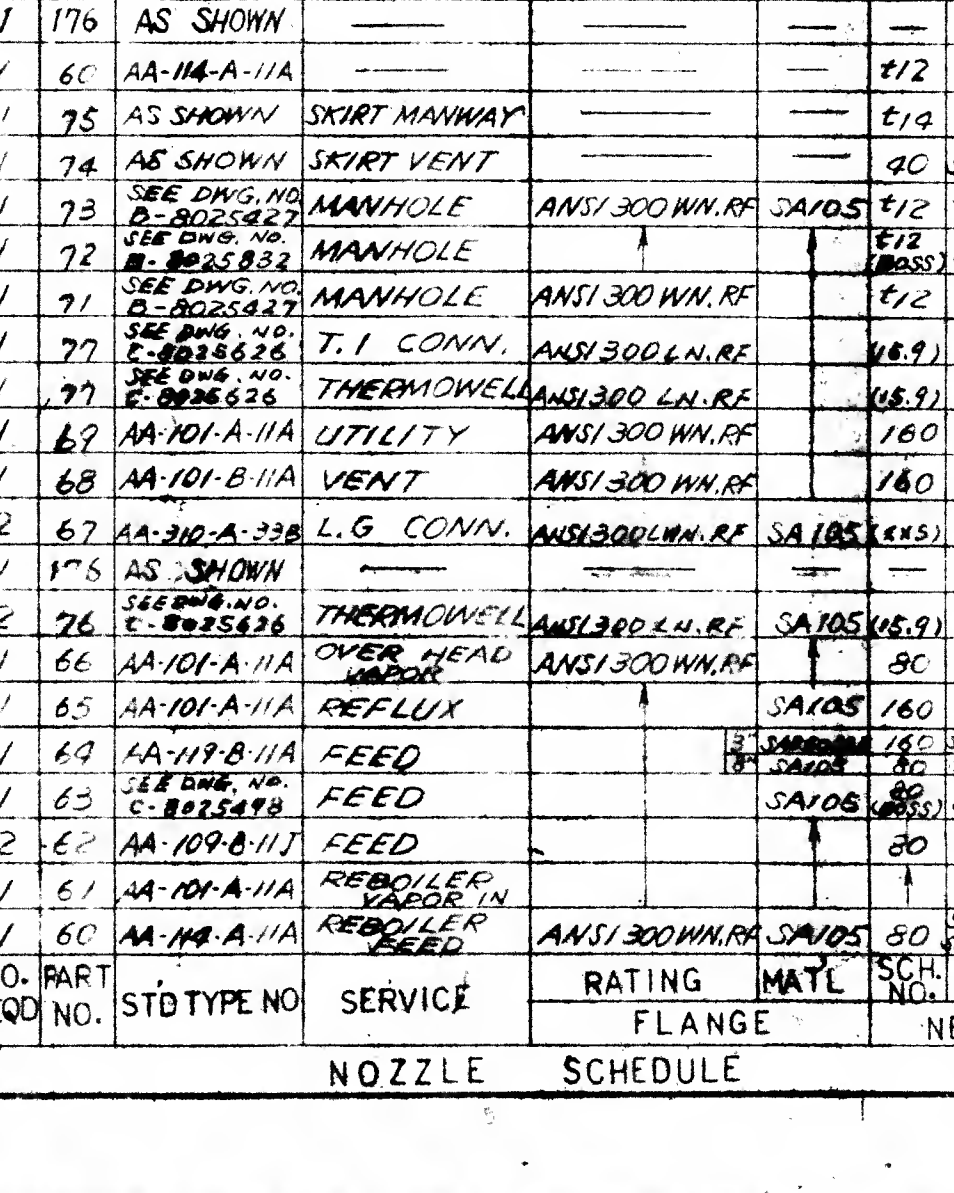 1 176 AS SHOWN
1 60 AA-114-A-11A t12
1 75 AS SHOWN SKIRT MANWAY t14
1 74 AS SHOWN SKIRT VENT 40
1 73 SEE DWG. NO. B-8025427 MANHOLE ANSI 300 WN.RF SA105 t12
1 72 SEE DWG. NO. 8025832 MANHOLE t12 (BOSS)
1 71 SEE DWG. NO. B-8025427 MANHOLE ANSI 300 WN.RF t12
1 77 SEE DWG. NO. C-8025626 T.I CONN. ANSI 300 LN.RF (15.9)
1 77 SEE DWG. NO. C-8025626 THERMOWELL ANSI 300 LN.RF (15.9)
1 69 AA-101-A-11A UTILITY ANSI 300 WN.RF 160
1 68 AA-101-B-11A VENT ANSI 300 WN.RF 160
2 67 AA-310-A-33B L.G CONN. ANSI 300 LWN.RF SA105 (XXS)
1 176 AS SHOWN
2 76 SEE DWG. NO. C-8025626 THERMOWELL ANSI 300 LN.RF SA105 (15.9)
1 66 AA-101-A-11A OVER HEAD VAPOR ANSI 300 WN.RF 80
1 65 AA-101-A-11A REFLUX SA105 160
1 64 AA-119-B-11A FEED 3" 160
8" SA105 80
1 63 SEE DWG. NO. C-8025498 FEED SA105 80 (BOSS)
2 62 AA-109-B-11J FEED 80
1 61 AA-101-A-11A REBOILER VAPOR IN
1 60 AA-114-A-11A REBOILER FEED ANSI 300 WN.RF SA105 80
O. PART NO. STD TYPE NO SERVICE RATING MAT'L SCH. NO.
QD FLANGE NE
NOZZLE SCHEDULE